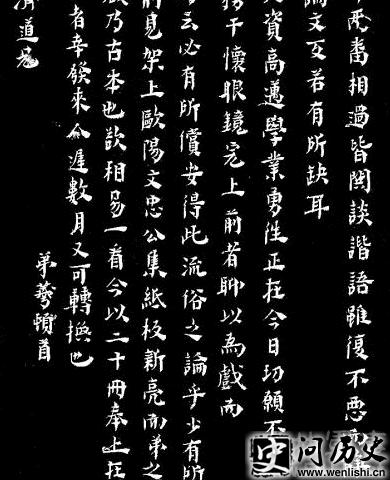 兩番相過皆閑談諧語雖復不惡
論文又若有所缺耳
資高邁學業勇進正在今日切願不
務干懷眼鏡完上前者聊以為戲而
云必有所償安得此流俗之論乎少有所
見架上歐陽文忠公集紙板新亮而弟之
乃古本也欲相易一看今以二十冊奉上在
者幸發來遲數月又可轉換也
弟頓首
道兄
史问历史
www.wenlishi.cn